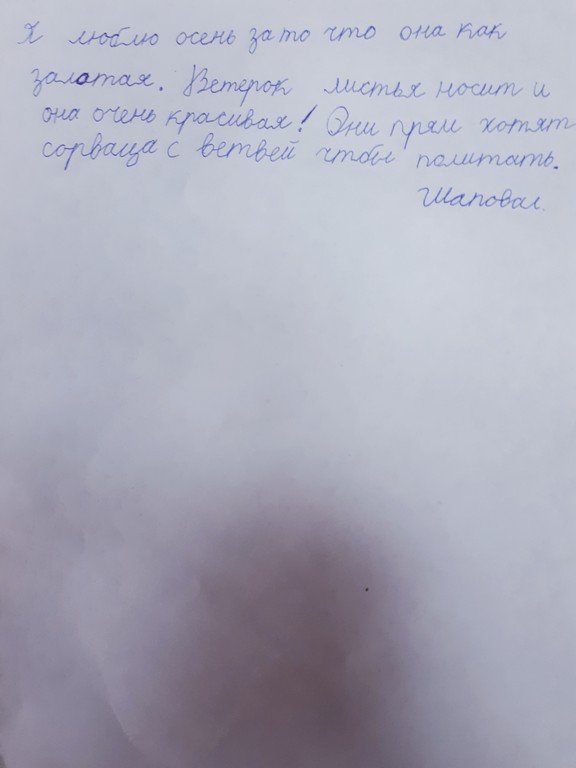 Я люблю осень за то что она как
залотая. Ветерок листья носит и
она очень красивая! Они прям хотят
сорваща с ветвей чтобы политать.
Шаповал.